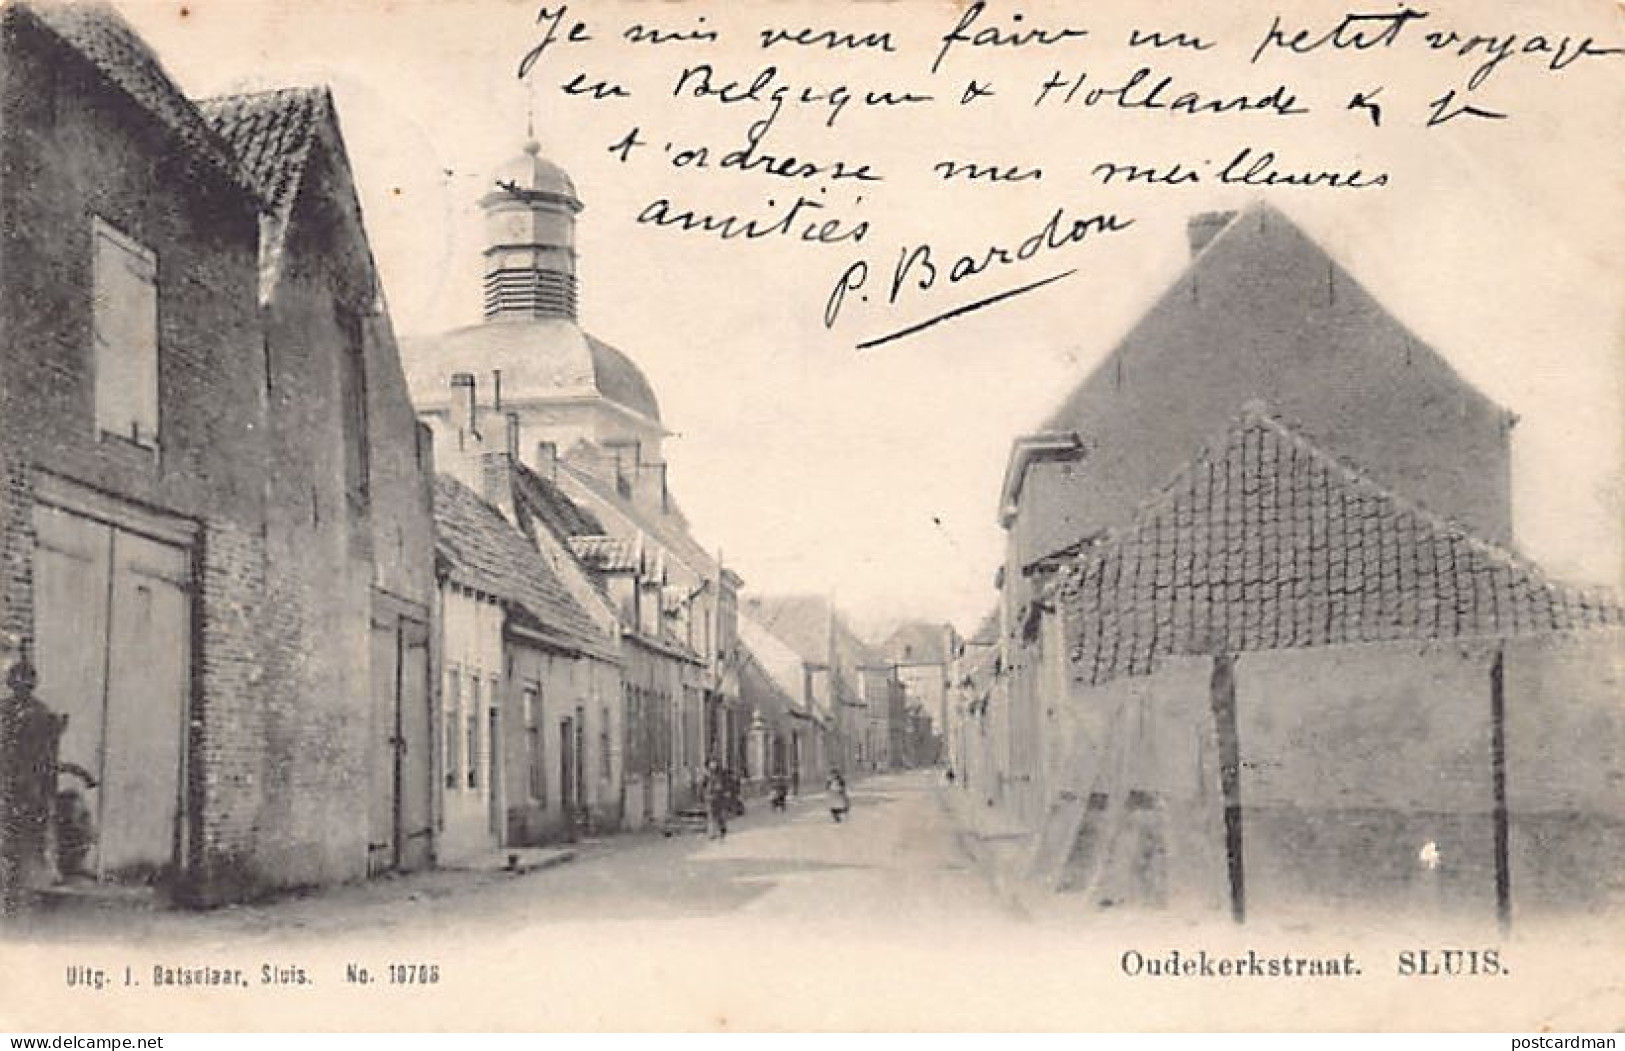 Je suis venu faire un petit voyage
en Belgique & Hollande & je
t'adresse mes meilleures
amitiés
P. Bardou
Uitg. J. Batselaar, Sluis. No. 10706
Oudekerkstraat. SLUIS.
www.delcampe.net
postcardman